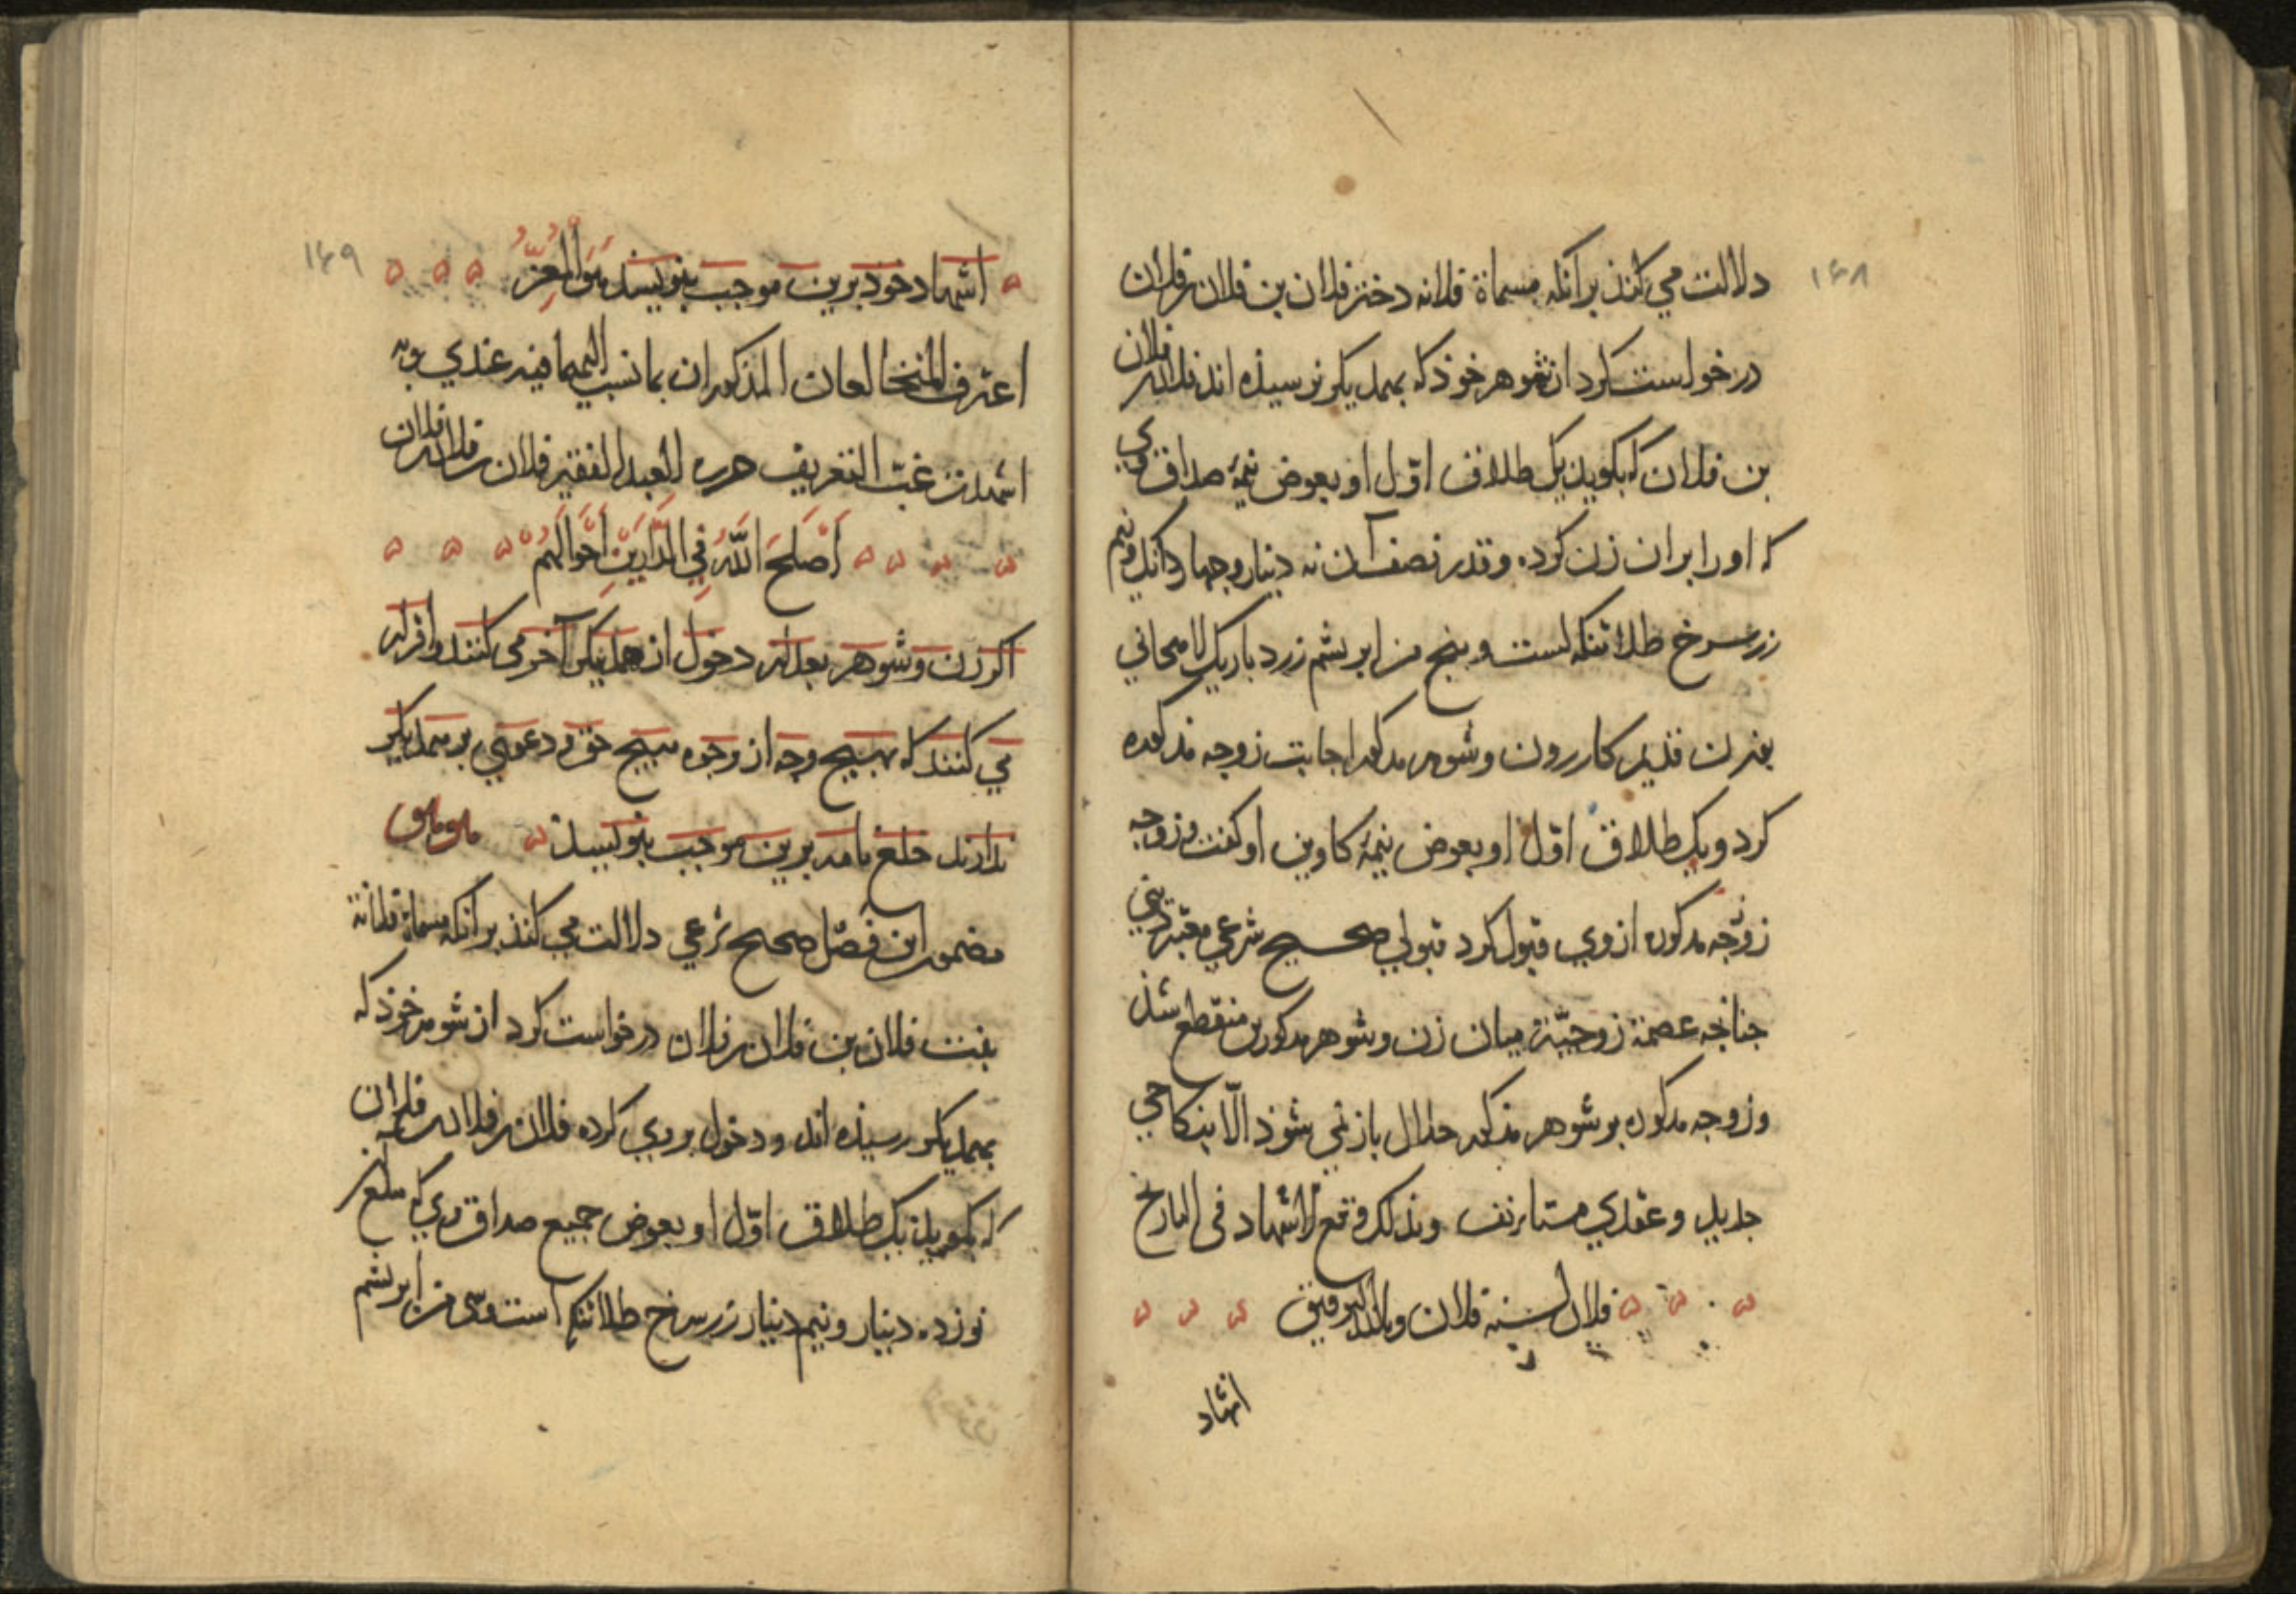 ۱۴۸
دلالت می کنذ برآنکه مسماة فلانه دختر فلان بن فلان بن فلان
درخواست کرد از شوهر خوذ که بهمدیکر نرسیذه اند فلان بن فلان
بن فلان که بکوید یک طلاق اوّل او بعوض نیمهٔ صداق وی
که او را بران زن کرده و قدر نصف آن نه دینار و چهار دانک و نیم
زر سرخ طلا تنکه است و پنج من ابریشم زرد باریک لامجانی
بوزن قدیم کازرون و شوهر مذکور اجابت زوجه مذکوره
کرد و یک طلاق اوّل او بعوض نیمهٔ کاوین او کفت و زوجه
زوجه مذکوره از وی قبول کرد قبولی صحیح شرعی معتبر دینی
جنانجه عصمة زوجیّة میان زن و شوهر مذکورین منقطع شذ
و زوجه مذکوره بر شوهر مذکور حلال باز نمی شوذ الّا بنکاحی
جدید و عقدی مستأنف وبذلک وقع الاشهاد فی التاریخ
فلان لسنه فلان وبالله التوفیق
اشهاد
۱۴۹
اشهاد خوذ برین موجب بنویسد هو المعزّ
اعترف المتخالعان المذکوران بما نسب الیهما فیه عندی وبه
اشهدت غبّ التعریف حرره العبد الفقیر فلان بن فلان بن فلان
أصلح الله في الدارین أحوالهم
اکر زن و شوهر بعد از دخول از همدیکر آخر می کنند و اقرار
می کنند که بهیچ وجه از وجوه هیچ حق و دعوی بر همدیکر
ندارند خلع نامه برین موجب بنویسند
مضمون این فصل صحیح شرعی دلالت می کنذ برآنکه مسماة فلانة
بنت فلان بن فلان بن فلان درخواست کرد از شوهر خوذ که
بهمدیکر رسیذه اند و دخول بر وی کرده فلان بن فلان بن فلان
که بکوید یک طلاق اوّل او بعوض جمیع صداق وی که مبلغ آن
نوزده دینار و نیم دینار زر سرخ طلا تنکه است و سی من ابریشم